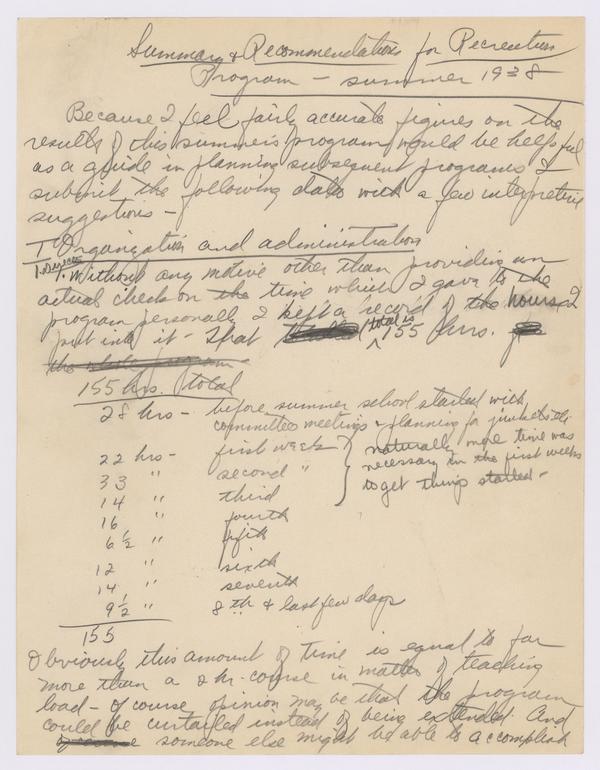 Summary & Recommendations for Recreation
Program — summer 1938
Because I feel fairly accurate figures on the
results of this summer's program would be helpful
as a guide in planning subsequent programs I
submit the following data with a few interpretive
suggestions —
I Organization and administration
1. Without any motive other than providing an
actual check on the time which I gave to the
program personally I kept a record of the hours I
put into it — That total is 155 hrs.
the whole program
155 hrs. total
28 hrs — before summer school started with,
committee meetings & planning for
22 hrs — first week
33 " second "
14 " third
16 " fourth
6 1/2 " fifth
12 " sixth
14 " seventh
9 1/2 " 8th & last few days
155
naturally more time was
necessary in the first weeks
to get things started —
Obviously this amount of time is equal to far
more than a 2 hr. course in matter of teaching
load — of course opinion may be that the program
could be curtailed instead of being extended. And
someone else might be able to accomplish